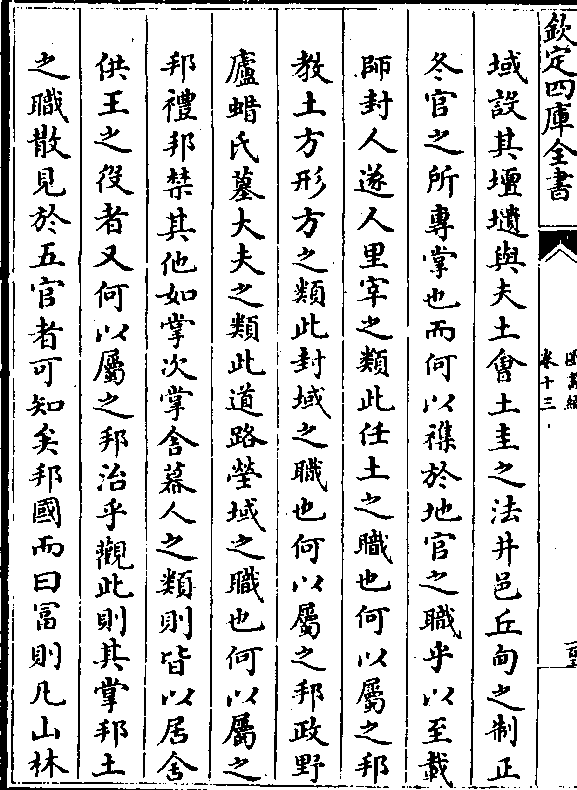 欽定四庫全書
卷十三
域設其壇壝與夫土會土圭之法井邑丘甸之制正
冬官之所專掌也而何以襍於地官之職乎以至載
師封人遂人里宰之類此任土之職也何以屬之邦
教土方形方之類此封域之職也何以屬之邦政野
廬蜡氏墓大夫之類此道路塋域之職也何以屬之
邦禮邦禁其他如掌次掌舍幕人之類則皆以居舍
供王之役者又何以屬之邦治乎觀此則其掌邦土
之職散見於五官者可知矣邦國而曰冨則凡山林